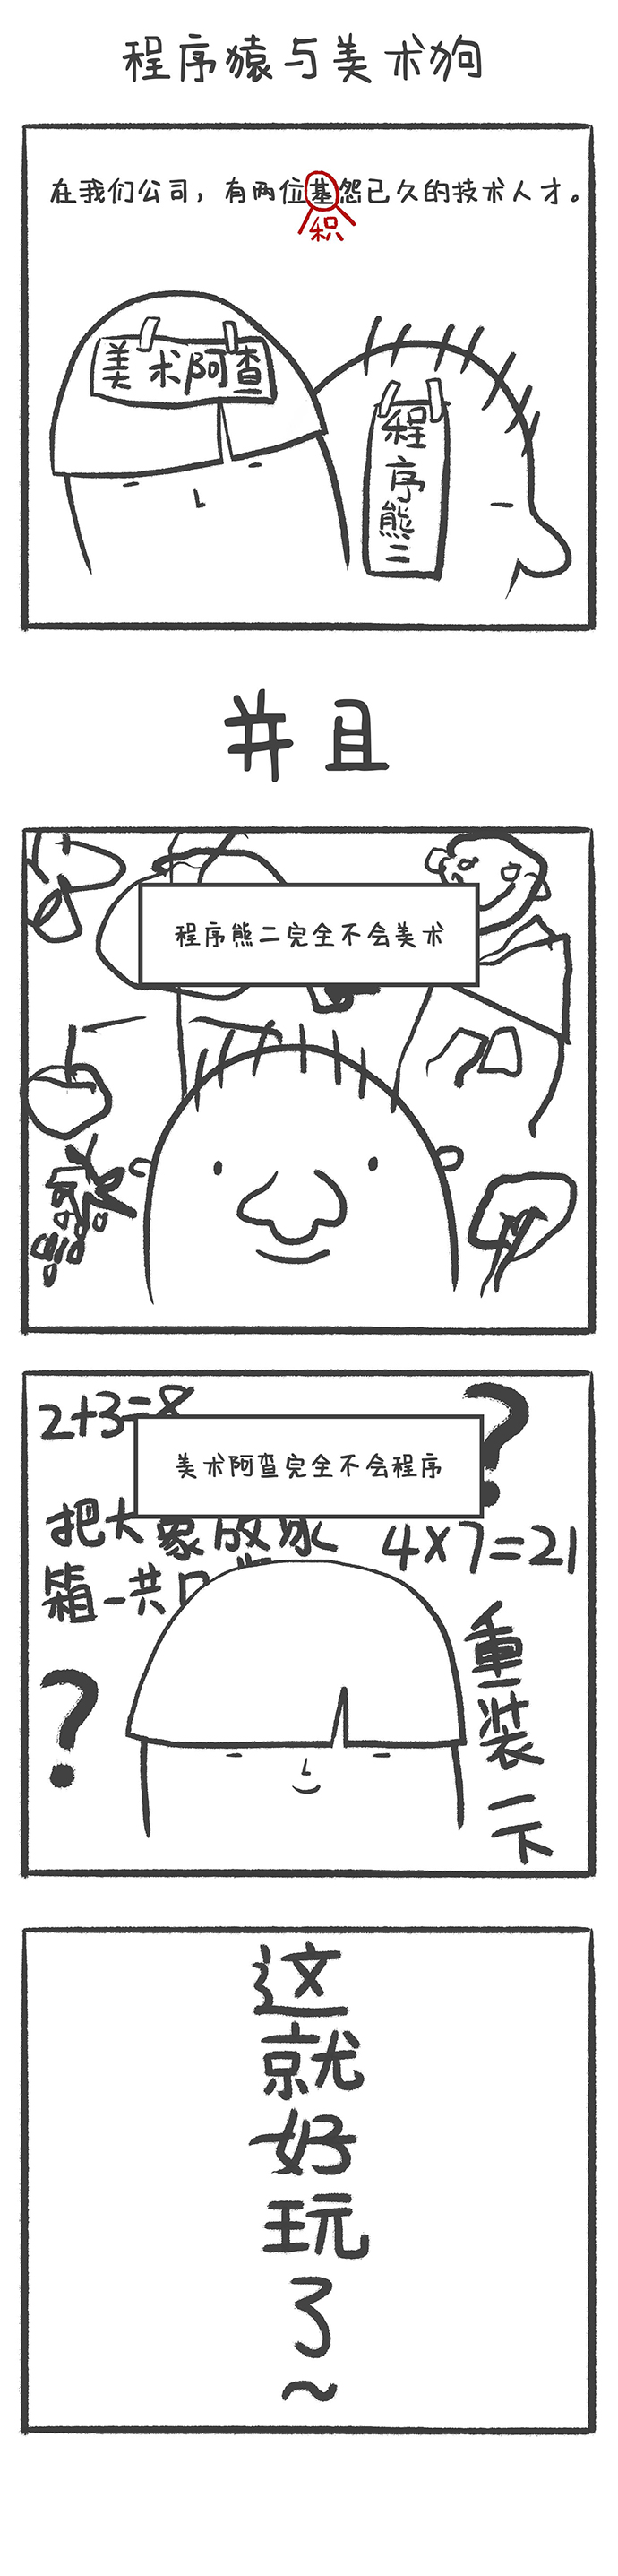 程序猿与美术狗
在我们公司，有两位基怨已久的技术人才。
积
美术阿查
程序熊二
并且
程序熊二完全不会美术
2+3=8
美术阿查完全不会程序
?
把大象放冰
4×7=21
箱一共
重装一下
?
这就好玩了~